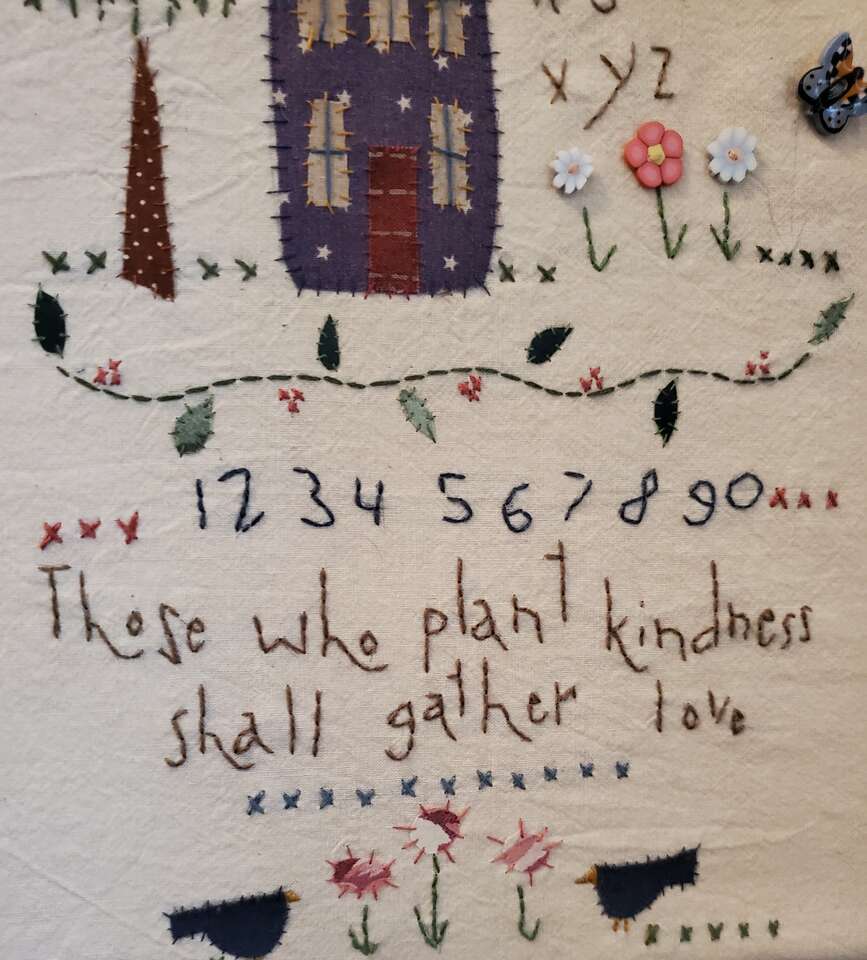 x y z
1 2 3 4 5 6 7 8 9 0
Those who plant kindness
shall gather love